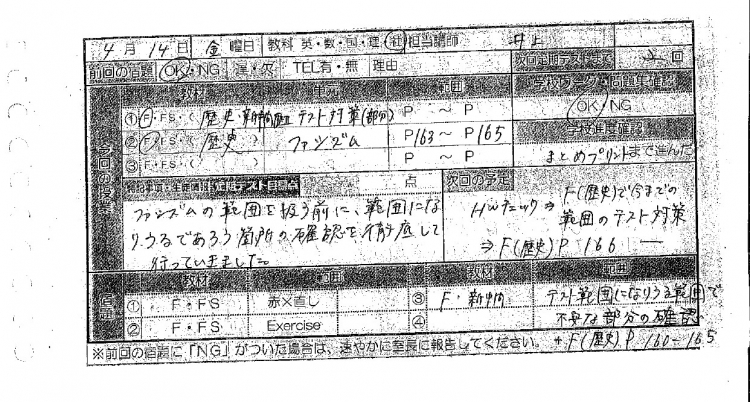 4月 14日 金 曜日 教科 英・数・国・理・社 担当講師 井上 次回定期テストまで 回
前回の宿題 OK・NG 遅・欠 TEL有・無 理由 学校ワーク 問題集確認
教材 単元 範囲 OK・NG
① F・FS・( 歴史 テスト対策(部分) P ～ P
② F・FS・( 歴史 ) ファシズム P163～ P165 学校進度確認
③ F・FS・( ) P ～ P まとめプリントまで進んだ
点 次回の予定
ファシズムの範囲を扱う前に、範囲にな
りうるであろう箇所の確認を徹底して
行っていきました。
⇒ F(歴史)で今までの
範囲のテスト対策
⇒ F(歴史) P 166 ―
宿題 教材 範囲 教材 範囲
① F・FS 赤×直し ③ F・新中問 テスト範囲になりうる範囲で
② F・FS Exercise ④ 不安な部分の確認
※前回の宿題に「NG」がついた場合は、速やかに室長に報告してください。 + F(歴史) P 160-165